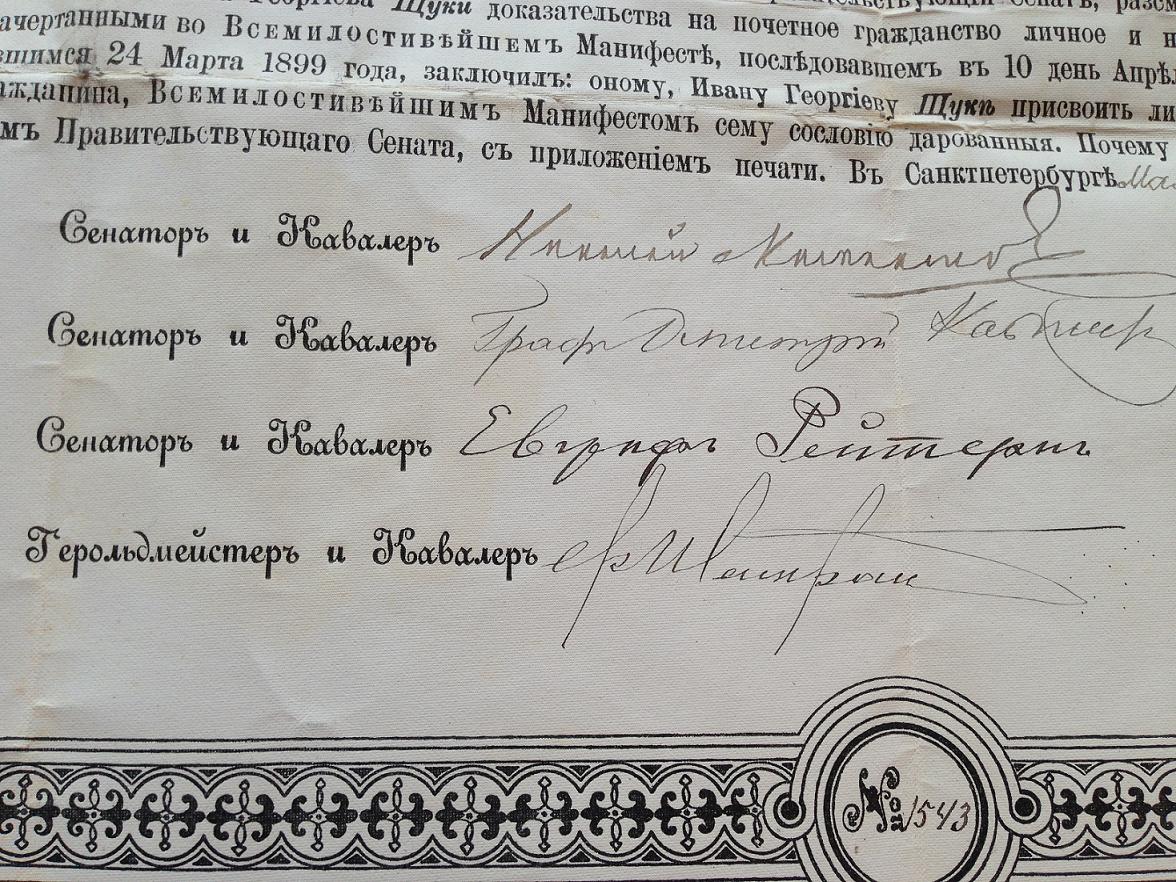 Георгіева Щуки доказательства на почетное гражданство личное и
во Всемилостивѣйшемъ Манифестѣ, послѣдовавшемъ въ 10 день
24 Марта 1899 года, заключилъ: оному, Ивану Георгіеву Щукѣ присвоить
Всемилостивѣйшимъ Манифестомъ сему сословію дарованныя. Почему
Правительствующаго Сената, съ приложеніемъ печати. Въ Санктпетербургѣ
Сенаторъ и Кавалеръ
Сенаторъ и Кавалеръ Графъ Дмитрій
Сенаторъ и Кавалеръ Евграфъ Рейтернъ
Герольдмейстеръ и Кавалеръ
№ 1543